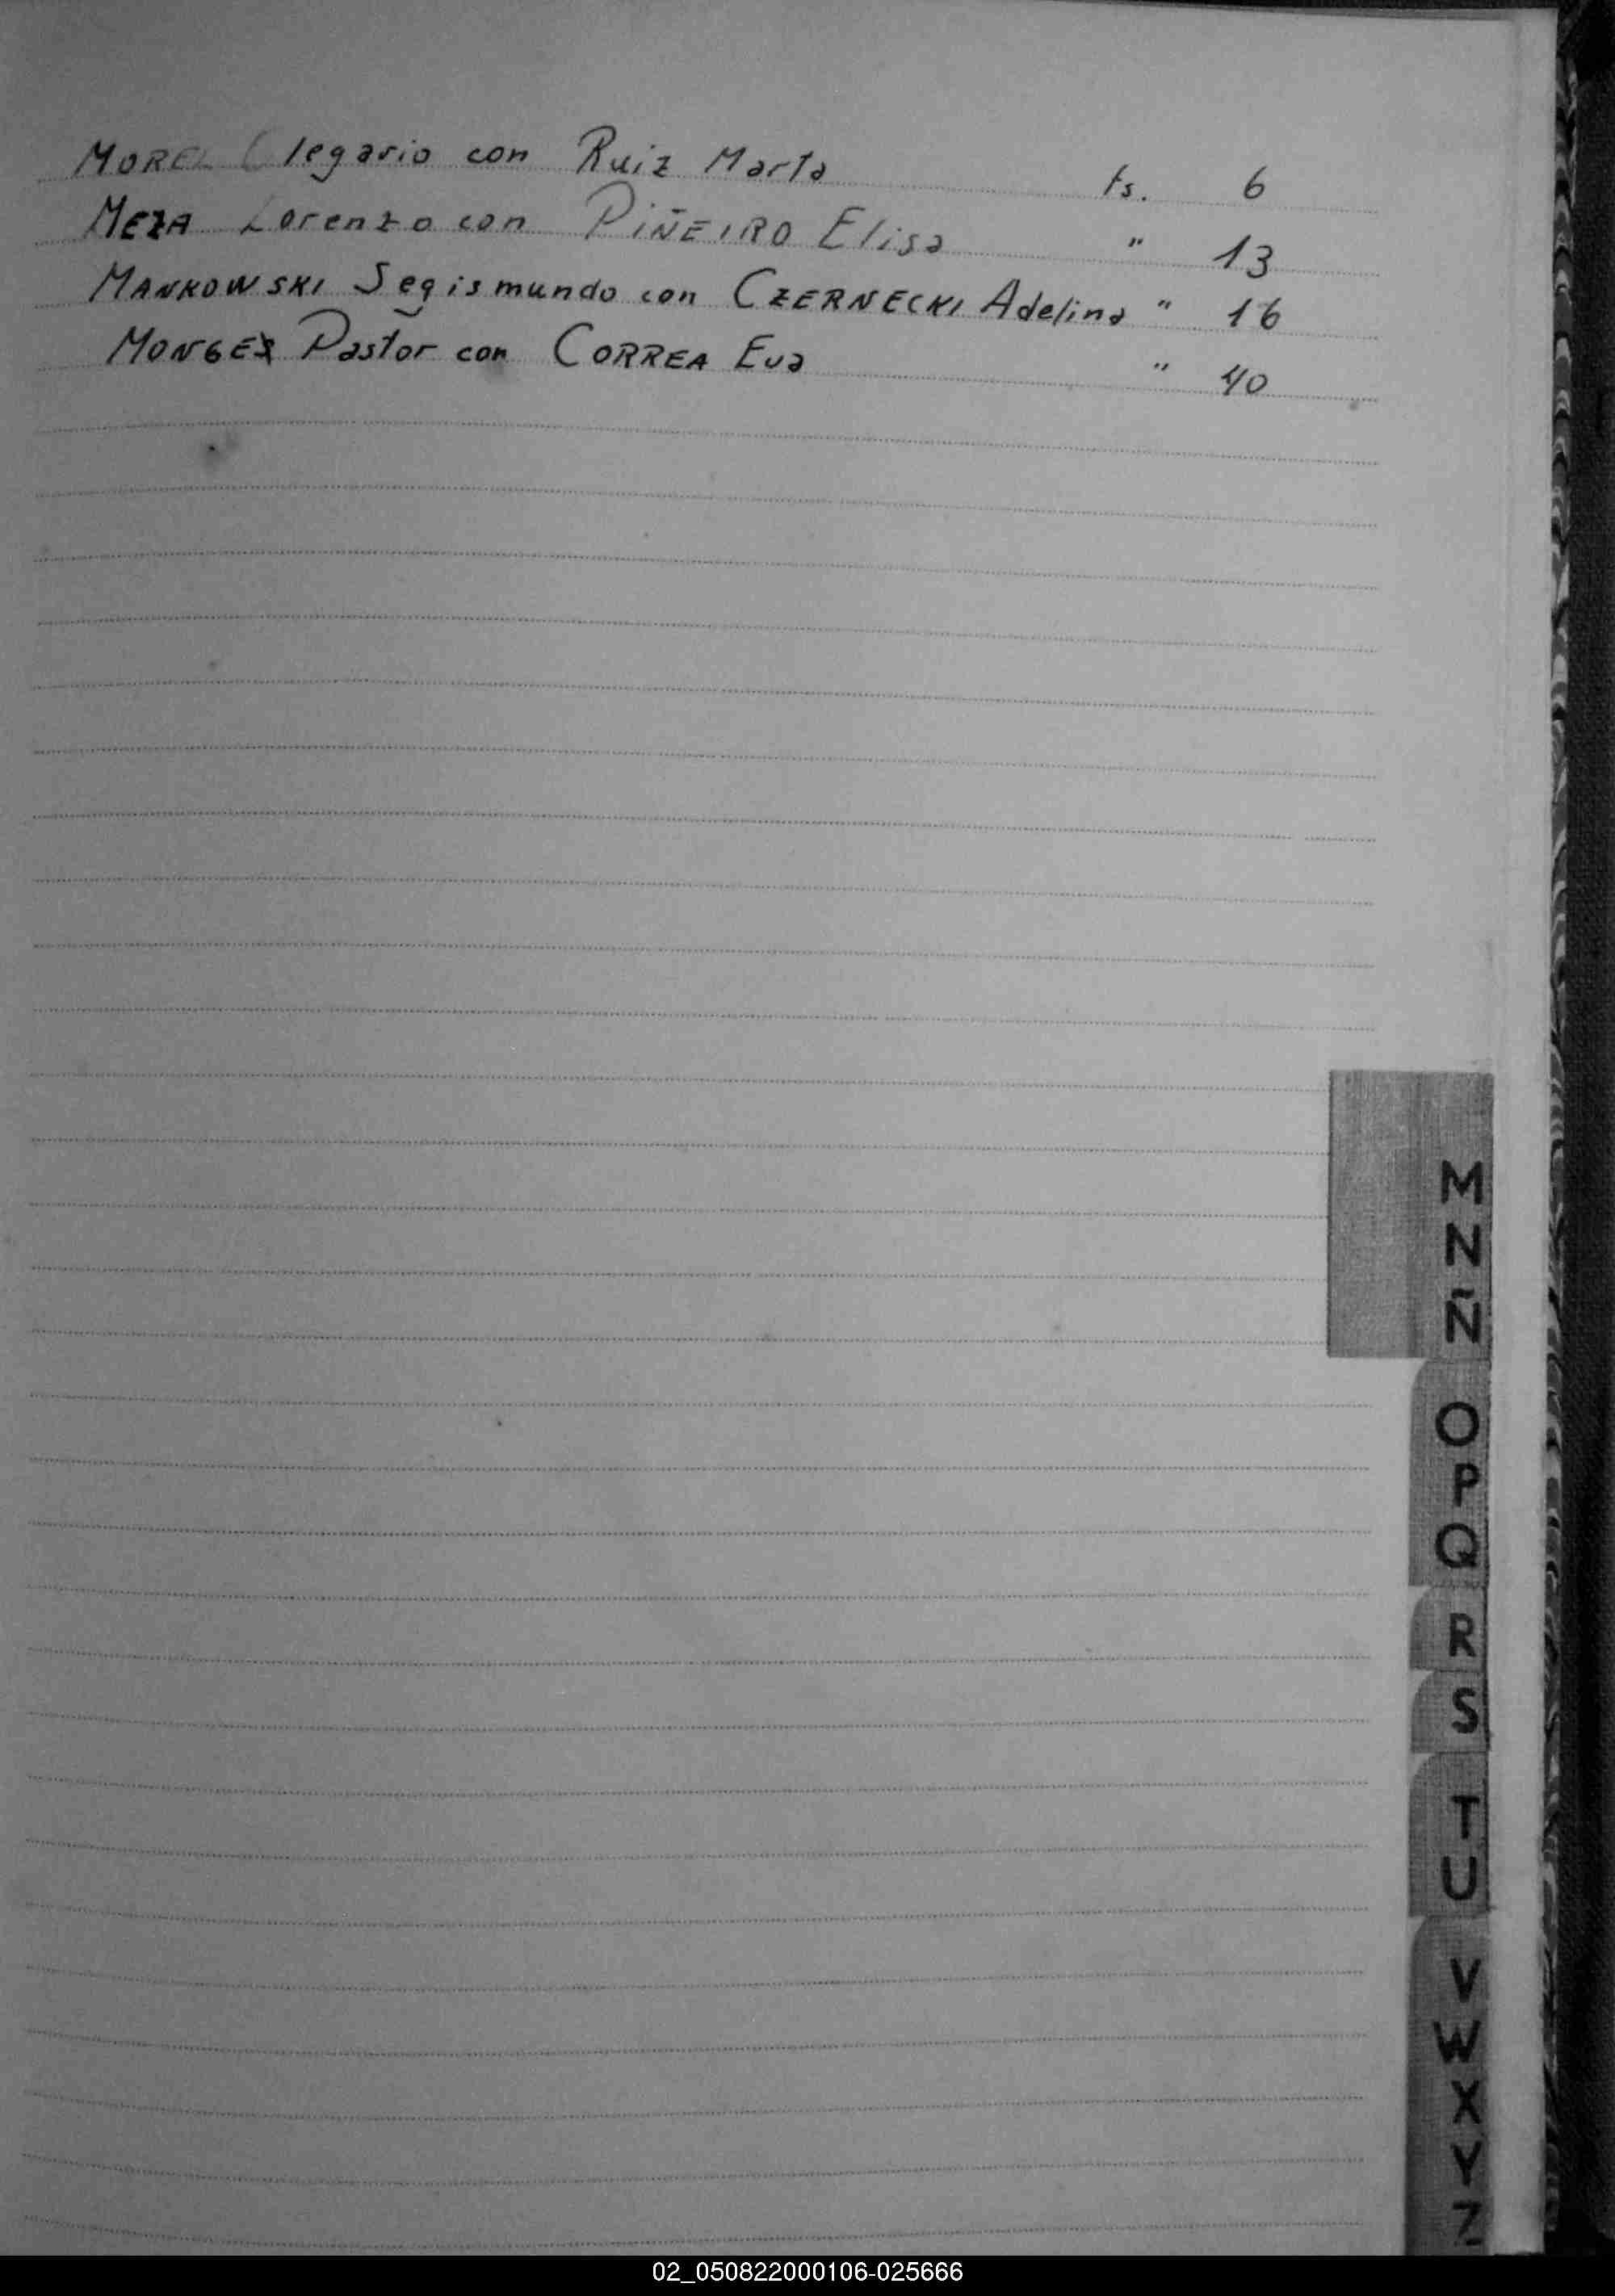 MOREL Olegario con Ruiz Marta fs. 6
MEZA Lorenzo con PIÑEIRO Elisa " 13
MANKOWSKI Segismundo con CZERNECKI Adelina " 16
Pastor con CORREA Eva " 40
M
N
Ñ
O
P
Q
R
S
T
U
V
W
X
Y
Z
02_050822000106-025666